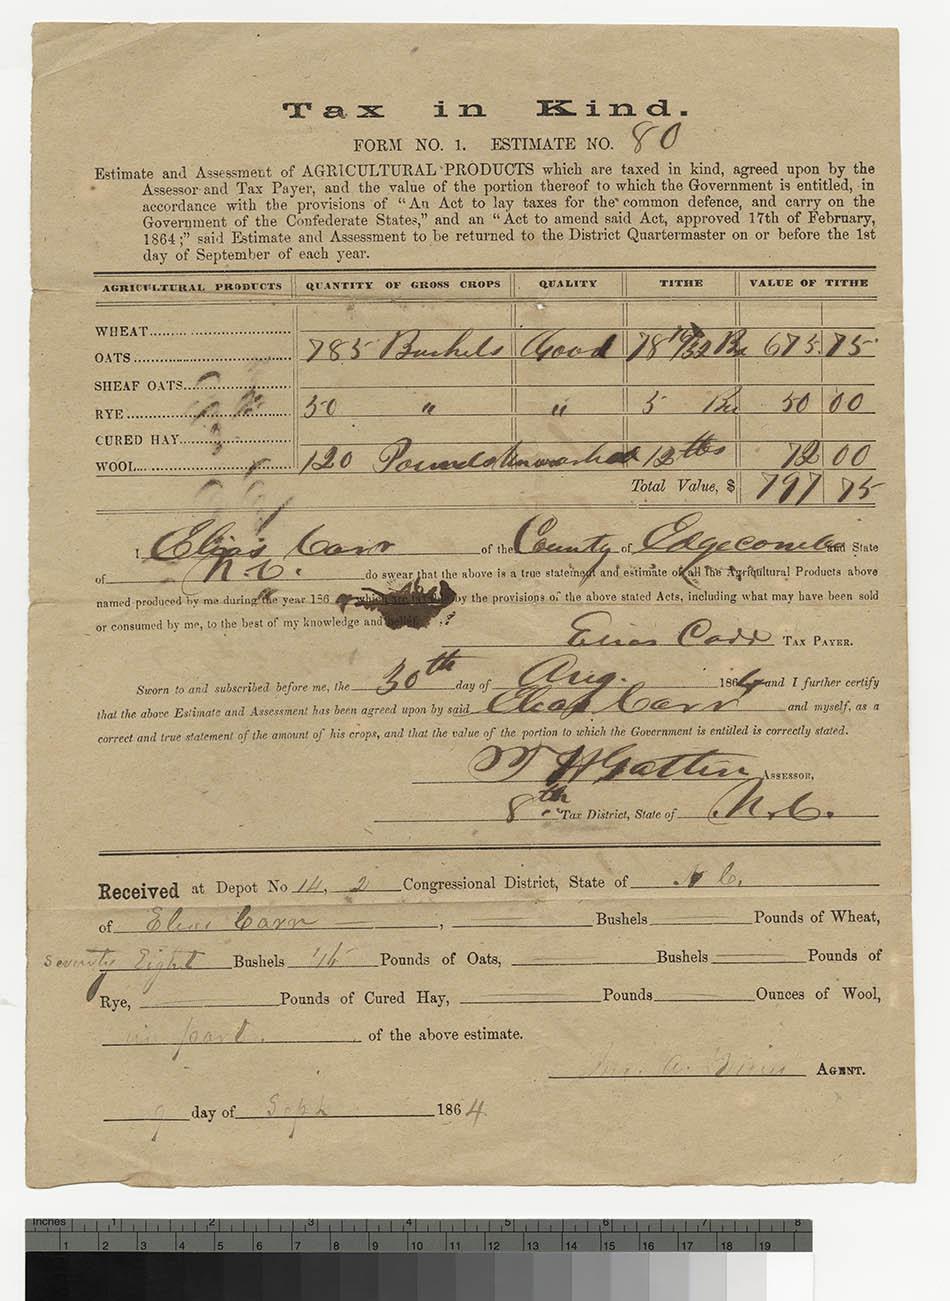 Tax in Kind.
FORM NO. 1. ESTIMATE NO. 80
Estimate and Assessment of AGRICULTURAL PRODUCTS which are taxed in kind, agreed upon by the
Assessor and Tax Payer, and the value of the portion thereof to which the Government is entitled, in
accordance with the provisions of "An Act to lay taxes for the common defence, and carry on the
Government of the Confederate States," and an "Act to amend said Act, approved 17th of February,
1864;" said Estimate and Assessment to be returned to the District Quartermaster on or before the 1st
day of September of each year.
AGRICULTURAL PRODUCTS QUANTITY OF GROSS CROPS QUALITY TITHE VALUE OF TITHE
WHEAT
OATS 785 Bushels Good 78 16/32 Bu 675 75
SHEAF OATS
RYE 50 " " 5 Bu 50 00
CURED HAY
WOOL 120 Pounds Unwashed 12 lbs 72 00
Total Value, $ 797 75
I Elias Carr of the County of Edgecombe and State
of N.C. do swear that the above is a true statement and estimate of all the Agricultural Products above
named produced by me during the year 186 which are taxable by the provisions of the above stated Acts, including what may have been sold
or consumed by me, to the best of my knowledge and belief.
Elias Carr TAX PAYER.
Sworn to and subscribed before me, the 30th day of Aug. 1864 and I further certify
that the above Estimate and Assessment has been agreed upon by said Elias Carr and myself, as a
correct and true statement of the amount of his crops, and that the value of the portion to which the Government is entitled is correctly stated.
W H Gatlin ASSESSOR,
8th Tax District, State of N.C.
Received at Depot No 14, 2 Congressional District, State of N C.
of Elias Carr, Bushels Pounds of Wheat,
Seventy Eight Bushels 16 Pounds of Oats, Bushels Pounds of
Rye, Pounds of Cured Hay, Pounds Ounces of Wool,
in part of the above estimate.
AGENT.
9 day of Sept 1864
Inches 1 2 3 4 5 6 7 8
1 2 3 4 5 6 7 8 9 10 11 12 13 14 15 16 17 18 19